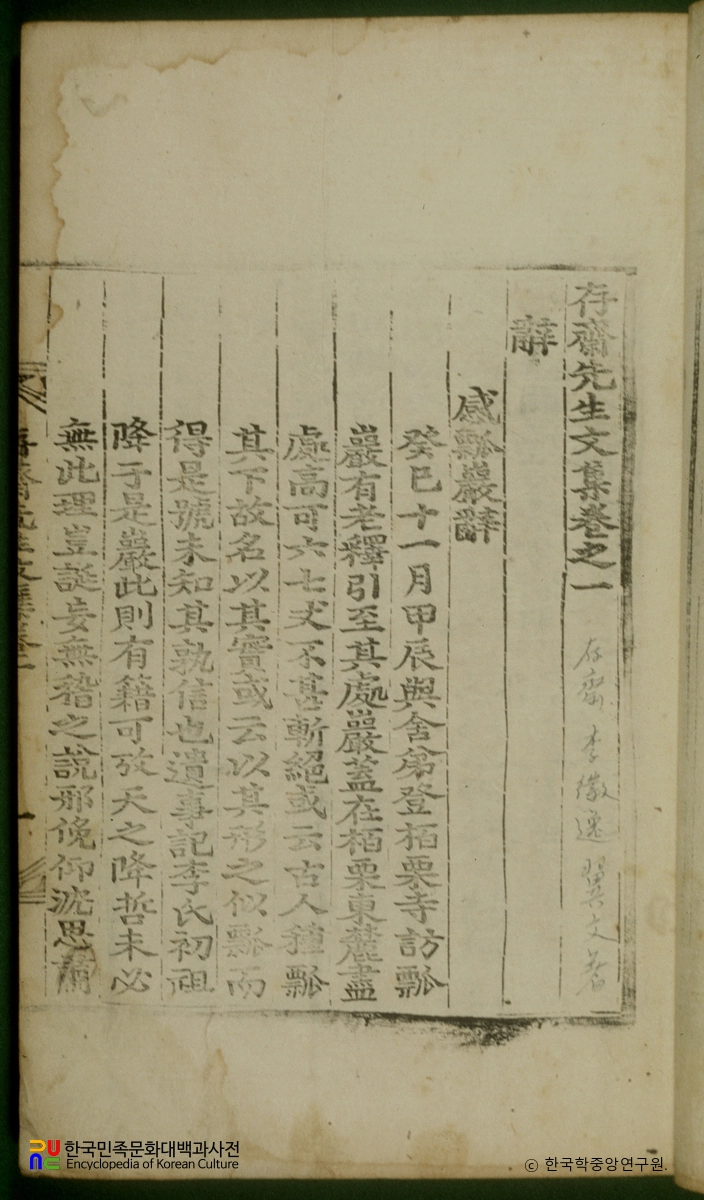 存齋先生文集卷之一
存齋 李徽逸 翼文 著
辭
感瓢巖辭
癸巳十一月甲辰與舍弟登栢栗寺訪瓢
巖有老釋引至其處巖蓋在栢栗東麓盡
處高可六七丈不甚斬絕或云古人種瓢
其下故名以其實或云以其形之似瓢而
得是號未知其孰信也遺事記李氏初祖
降于是巖此則有籍可攷天之降哲未必
無此理豈誕妄無稽之說邪俛仰沈思
存齋先生文集卷一
一
한국민족문화대백과사전
Encyclopedia of Korean Culture
© 한국학중앙연구원.